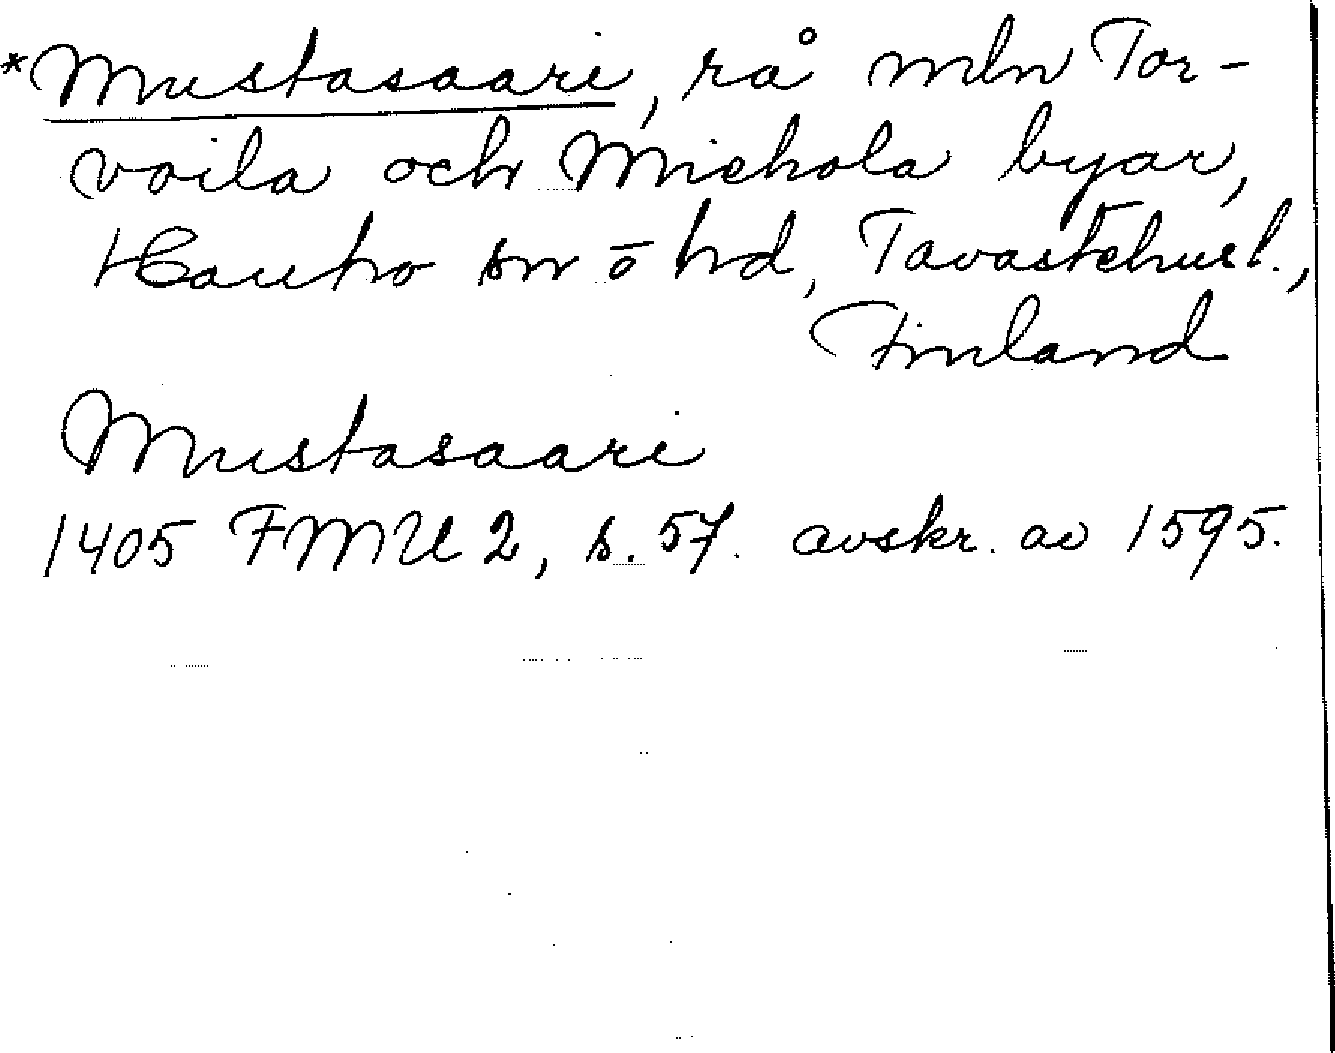 *Mustasaari, rå mln Tor-
voila och Miehola byar,
Hauho sn o hd, Tavastehusl.,
Finland
Mustasaari
1405 FMU 2, s. 57. avskr. av 1595.